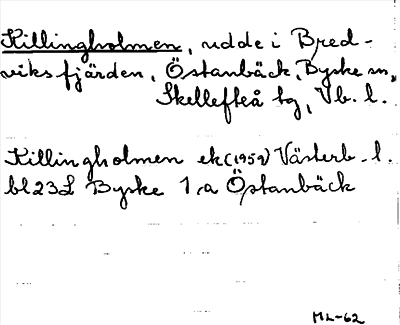 Killingholmen, udde i Bred-
viksfjärden, Östanbäck, Byske sn,
Skellefteå tg, Vb. l.
Killingholmen ek(1959) Västerb. l.
bl 23L Byske 1.a Östanbäck
ML-62